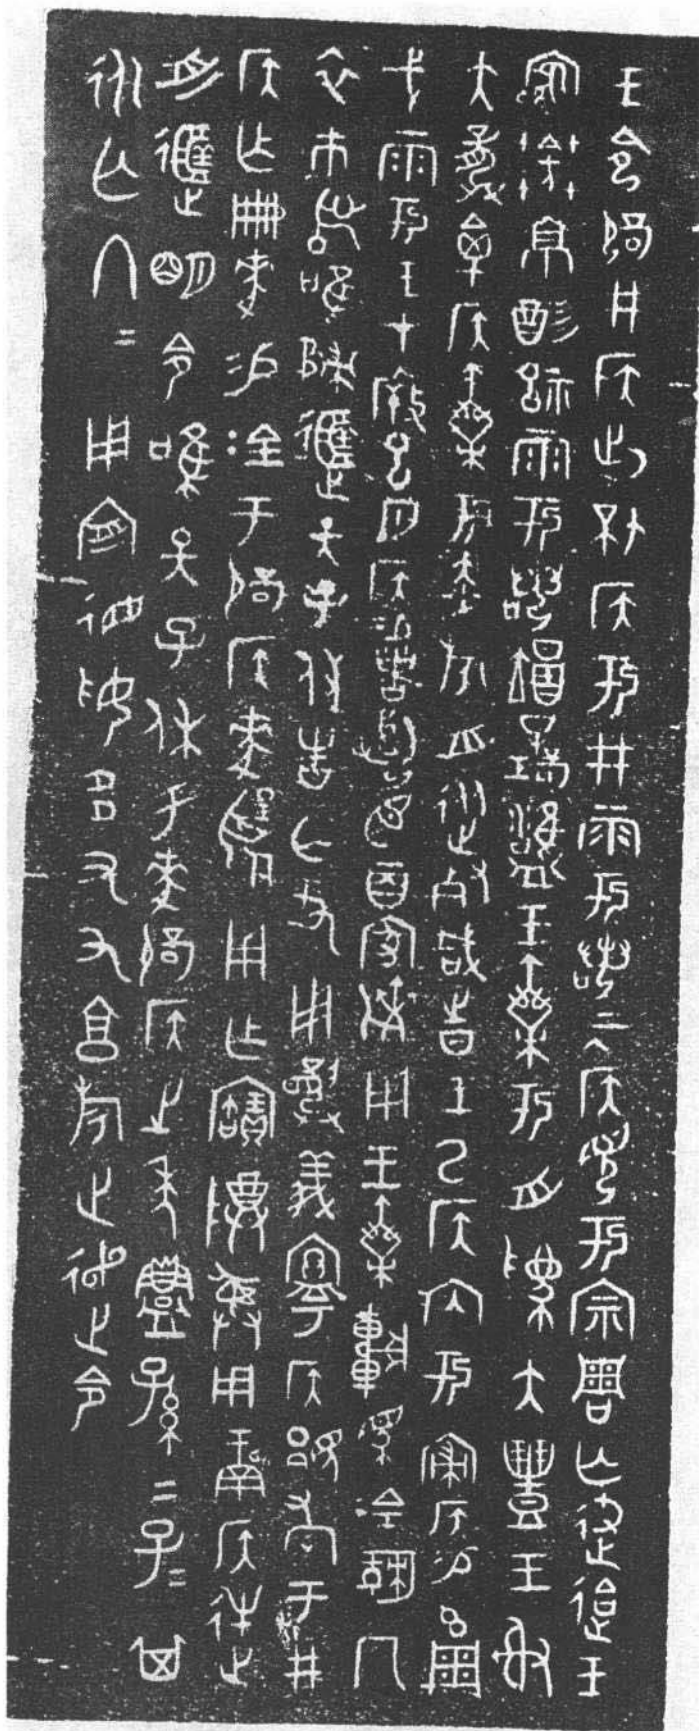 王令辟井侯出坯侯于井雩若二月侯見于宗周亡尤迨王
客京酒祀雩若翌日在璧雝王乘于舟為大豊王射
大龏禽侯乘于赤旂舟從死咸之日王以侯内于寢侯易玄琱
戈雩王在斥巳夕侯易者臣二百家劑用王乘車馬金勒冂
衣巿舄唯歸遟天子休告亡尤用龏義寧侯顯孝于井
侯乍册麥易金于辟侯麥揚用乍寶尊彝用侯逆
舟遟明令唯天子休于麥辟侯之年鑄孫=子=其
永亡冬=用造德妥多友享旋走令